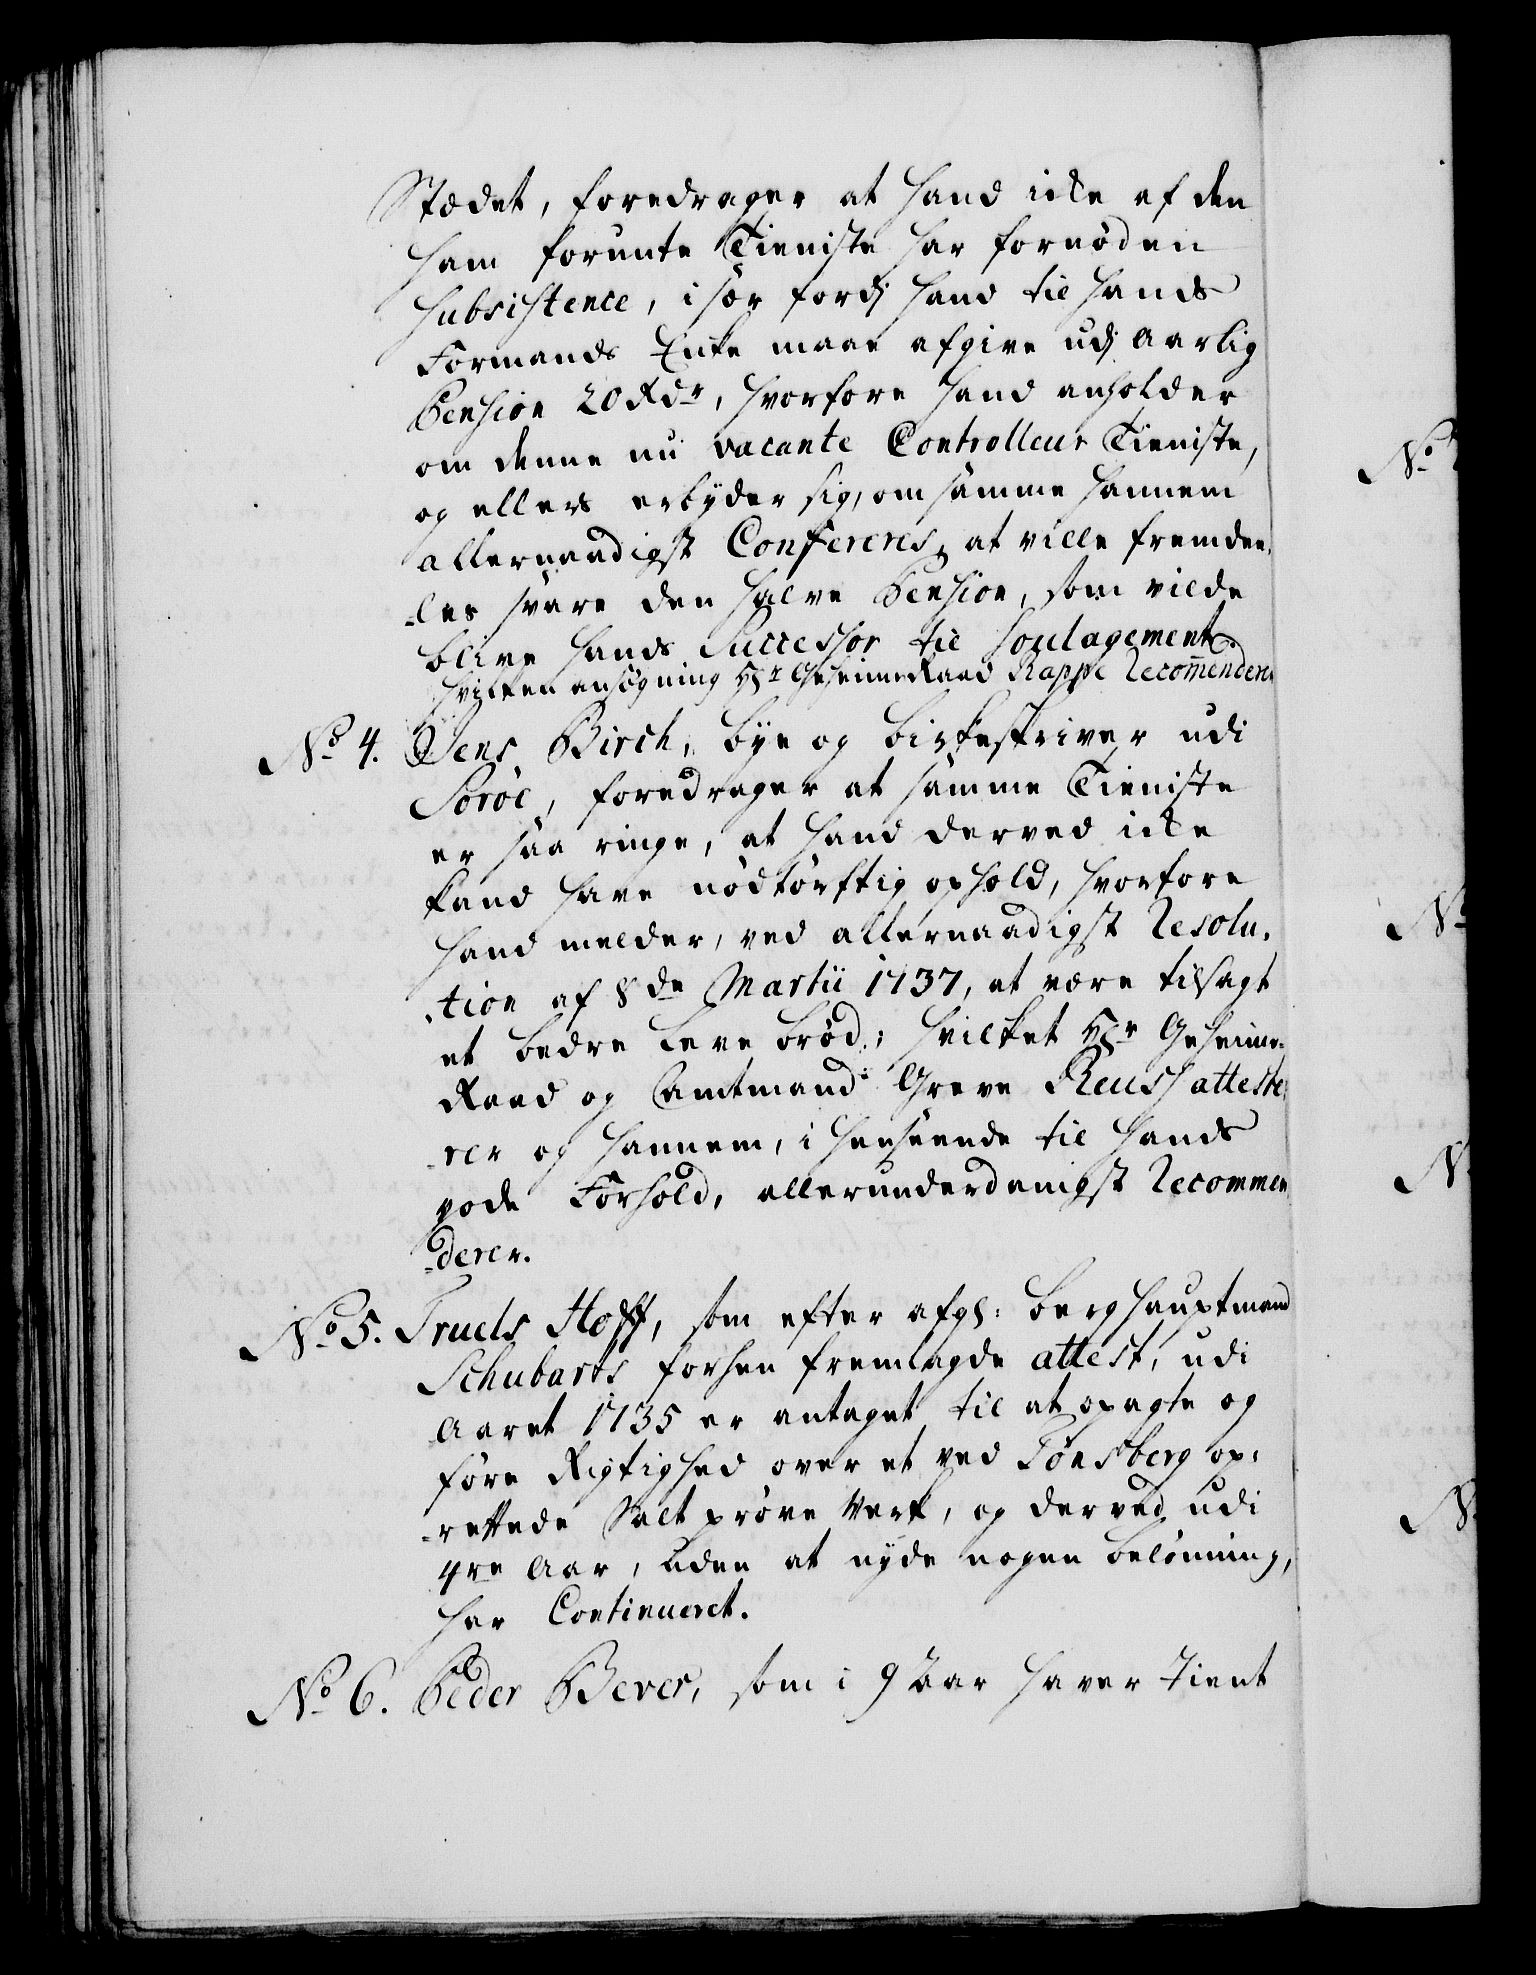 Stædet, foredrager at hand icke af den
ham forunte Tieniste har fornøden
Subsistence, i sær fordj hand til hands
Formands Enke maae afgive udj Aarlig
Pension 20 Rdr, hvorfore hand anholder
om denne nu vacante Controlleur Tieniste,
og ellers erbyder sig, om samme hannem
allernaadigst Confereres, at ville fremdee-
-les svare den halve Pension, som vilde
blive hands Successor til Soulagement,
hvilken ansøgning Hr GeheimeRaad Rappe Recom̄enderer
No 4. Jens Birch, bye og birkeskriver udi
Soröe, foredrager at samme Tieniste
er saa ringe, at hand derved icke
kand have nødtørftig ophold, hvorfore
hand melder, ved allernaadigst Resolu-
-tion af 8de Martii 1737, at være tilsagt
et bedre leve brød; hvilket Hr Geheime-
Raad og Amtmand Greve Reuss atteste-
-rer og hannem, i henseende til hands
gode Forhold, allerunderdanigst Recommen-
-derer.
No 5. Truels Hoff, som efter afgl: berghauptmand
Schubarts forhen fremlagde attest, udi
Aaret 1735 er antaget til at opagte og
føre Rigtighed over et ved Tønsberg op-
-rettede Salt prøve Verk, og derved udi
4re Aar, uden at nyde nogen belønning,
har Continueret.
No 6. Peder Bever, som i 9 Aar haver tient
No
No
N
N